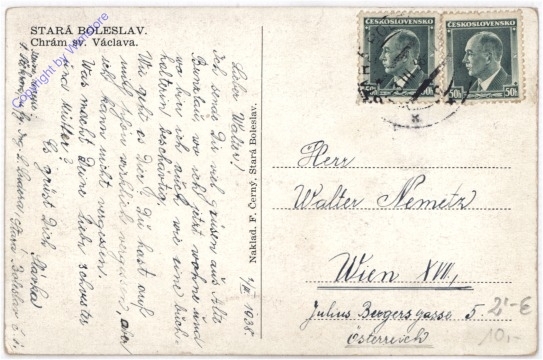 STARÁ BOLESLAV.
Chrám sv. Václava.
Copyright by West-Lore
ČESKOSLOVENSKO
50h
ČESKOSLOVENSKO
50h
50h
Naklad. F. Černý, Stará Boleslav.
1/III 1938.
Lieber Walter!
Ich sende Dir viel grüsse aus Alt
Bunzlau, wo ich jetzt wohne und
wo bin ich auch wie eine Buch-
halterin beschäftigt.
Wie geht es Dir? Du hast auf
mich schon wirklich vergessen, aber
ich kann nicht vergessen.
Was macht Deine liebe Schwester
und Mutter?
Es grüsst Dich
Stará Boleslav
Herr
Walter Nemetz
Wien XVII,
Julius Bergergasse 5.
Österreich
2'-€
10,-